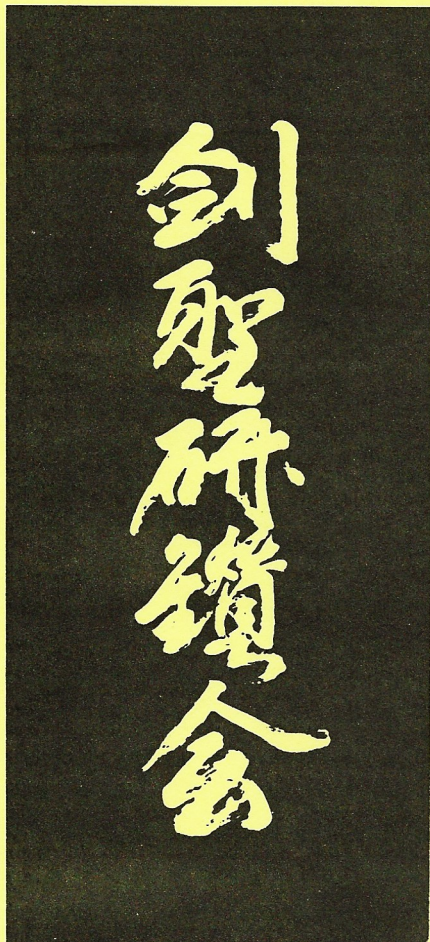 剣聖研鑚会